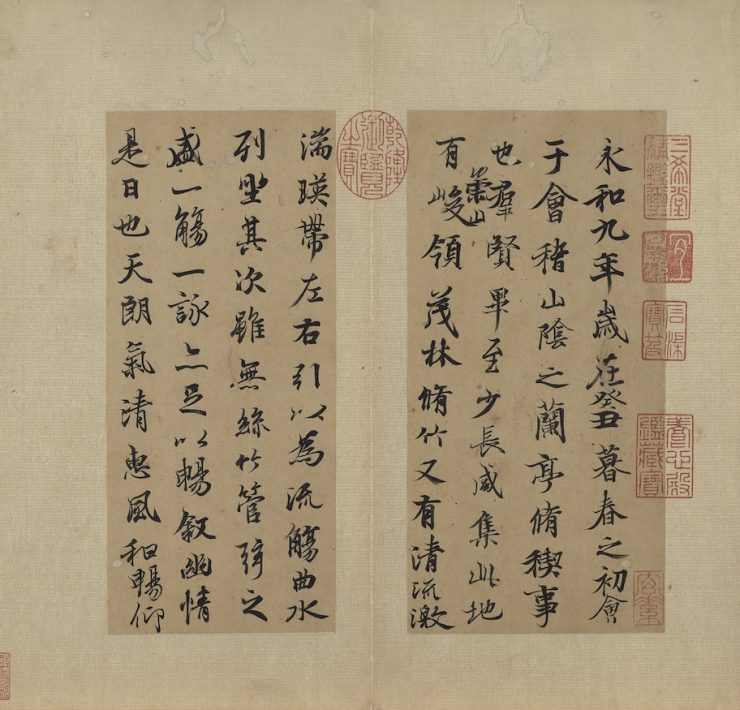 三希堂精鑑璽
宜子孫
石渠寶笈
養心殿鑑藏寶
永和九年歲在癸丑暮春之初會
于會稽山陰之蘭亭脩稧事
也羣賢畢至少長咸集此地
有崇山峻領茂林脩竹又有清流激
乾隆御覽之寶
湍暎帶左右引以為流觴曲水
列坐其次雖無絲竹管弦之
盛一觴一詠亦足以暢叙幽情
是日也天朗氣清惠風和暢仰